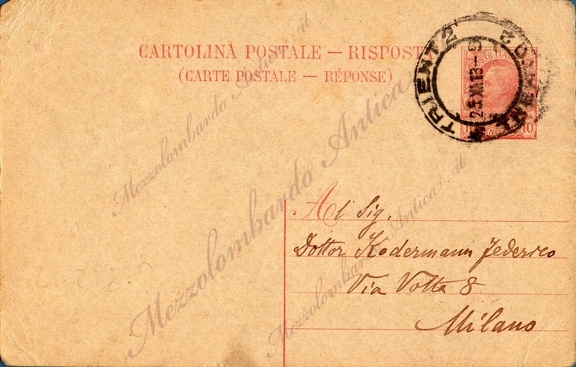 CARTOLINA POSTALE — RISPOSTA
(CARTE POSTALE — RÉPONSE)
TRIENT 2
23 XI 13
10
Al Sig.
Dottor Kodermann Federico
Via Volta 8
Milano
Mezzolombardo Antica.it
Mezzolombardo Antica
Mezzolombardo Antica.it